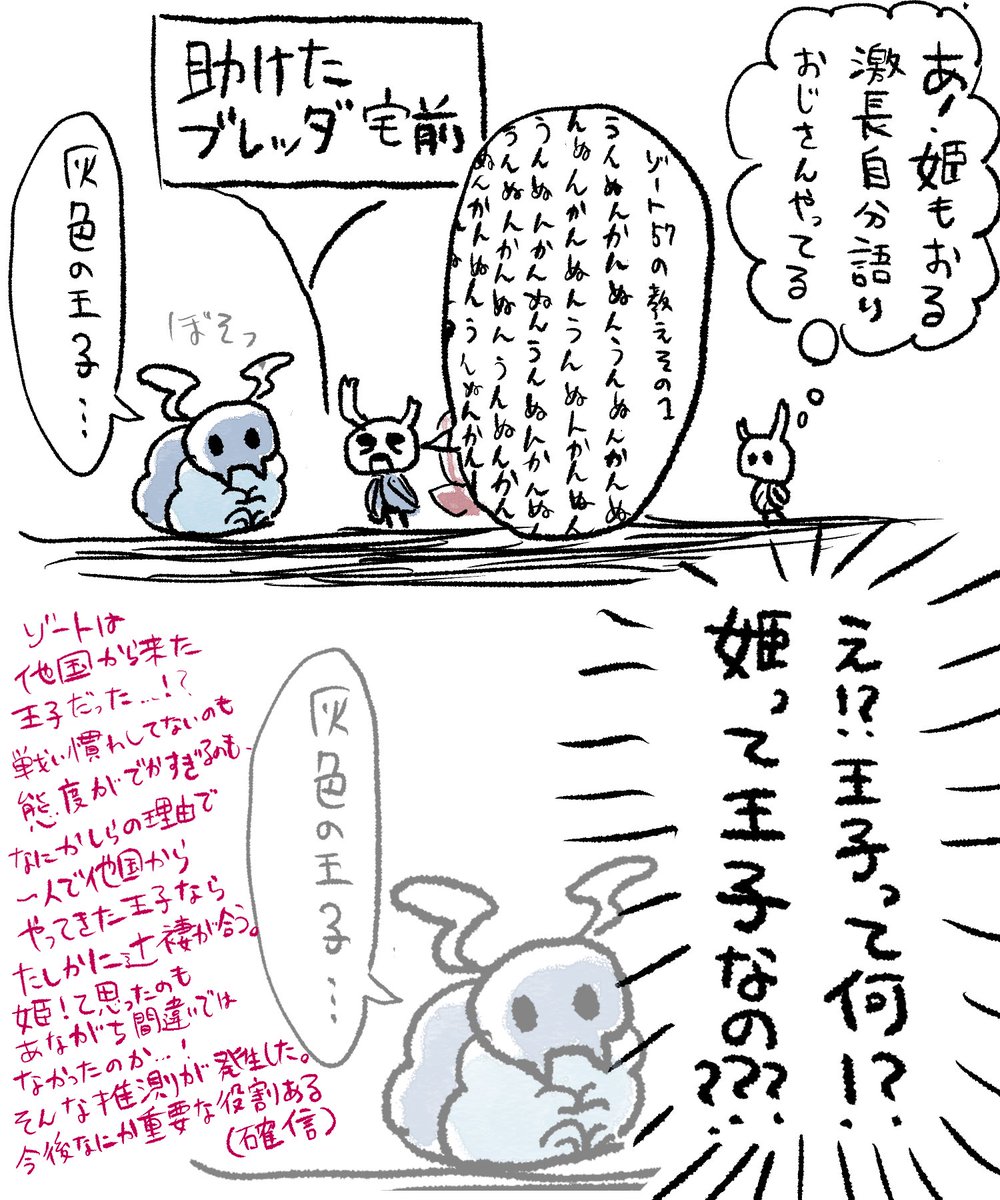 あ！姫もおる
激長自分語り
おじさんやってる
助けた
ブレッダ宅前
ゾート57の教えその1
うんぬんかんぬんうんぬんかんぬ
んぬんかんぬんうんぬんかんぬん
うんぬんかんぬんうんぬんかんぬん
うんぬんかんぬんうんぬんかん
ぬんかんぬんうんぬんかん
ぼそっ
灰色の王子…
え!?王子って何!?
姫って王子なの???
灰色の王子…
ゾートは
他国から来た
王子だった…!?
戦い慣れしてないのも
態度がでかすぎるのも、
なにかしらの理由で
一人で他国から
やってきた王子なら
たしかに辻褄が合う。
姫！て思ったのも
あながち間違いでは
なかったのか…！
そんな推測が発生した。
今後なにか重要な役割ある
(確信)